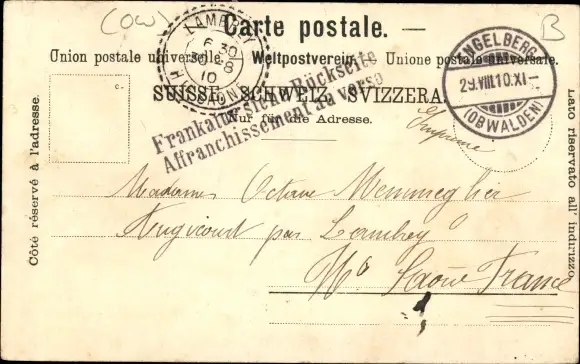 (OW)
B
Carte postale. —
Union postale universelle. Weltpostverein. Unione postale universale.
SUISSE. SCHWEIZ. SVIZZERA.
Nur für die Adresse.
Côté réservé à l'adresse.
Lato riservato all' indirizzo.
6 30
30 - 8
10
ENGELBERG
29.VIII.10.XI-
(OBWALDEN)
Frankatur siehe Rückseite
Affranchissement au verso
Imprimé
Madame Octave
par
Hte Saône France